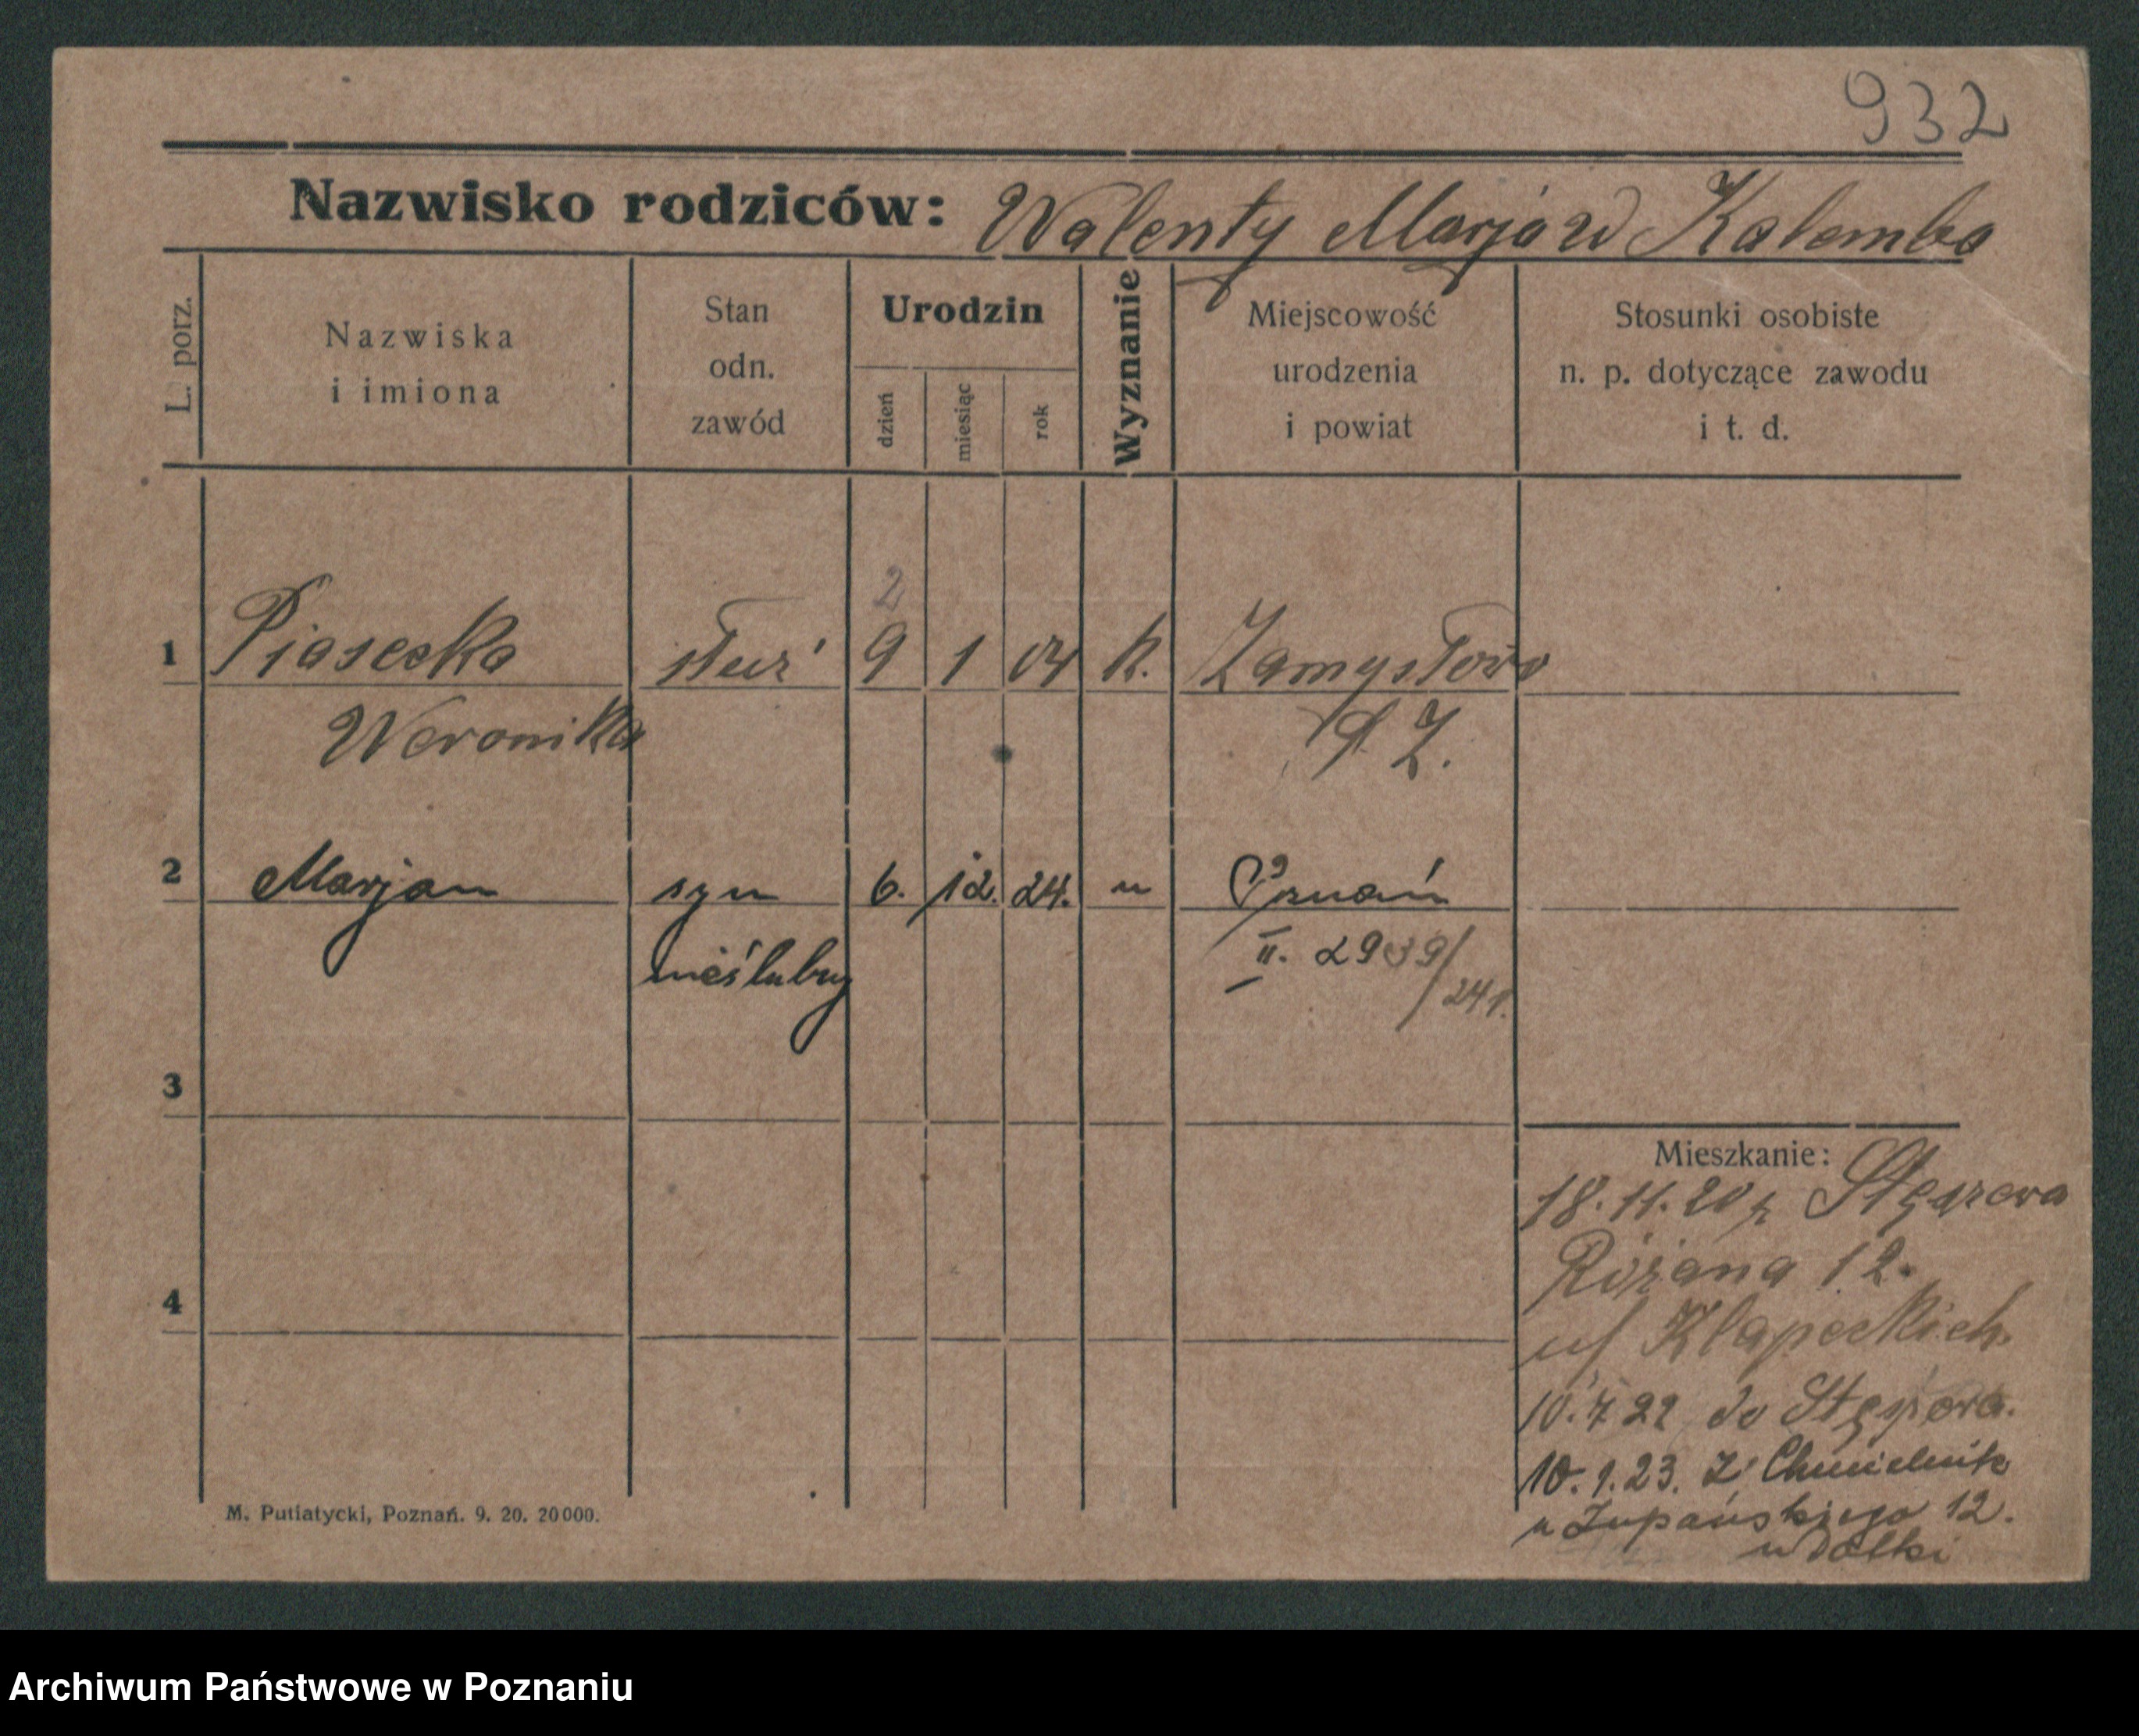 932
Nazwisko rodziców: Walenty Marja zd Kalemba
L. porz.
Nazwiska
i imiona
Stan
odn.
zawód
Urodzin
dzień
miesiąc
rok
Wyznanie
Miejscowość
urodzenia
i powiat
Stosunki osobiste
n. p. dotyczące zawodu
i t. d.
2
1 Piasecka służ 9 1 04 k. Zamysłowo
Weronika
2 Marjan syn 6. 12. 24. " Poznań
nieślubny II. 2939/24 r.
3
4
Mieszkanie:
18.11.20 z Stęszewa
Różana 12.
u/ Klapeckich
10.7 22 do Stęszewa.
10.1.23. z Chmielnik
Żupańskiego 12.
M. Putiatycki, Poznań. 9. 20. 20000.
Archiwum Państwowe w Poznaniu